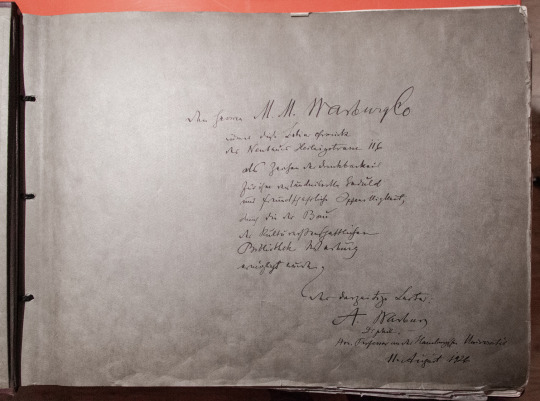 Den Herren M. M. Warburg Co
wird diese
des Neubaus Heilwigstrasse 116
als Zeichen der Dankbarkeit
für ihre verständnisvolle Geduld
und freundschaftliche Opferwilligkeit,
durch die der Bau
der Kulturwissenschaftlichen
Bibliothek Warburg
ermöglicht wurde,
der derzeitige Leiter:
A. Warburg
Dr phil.
Hon. Professor an der Hamburgischen Universität
August 1926